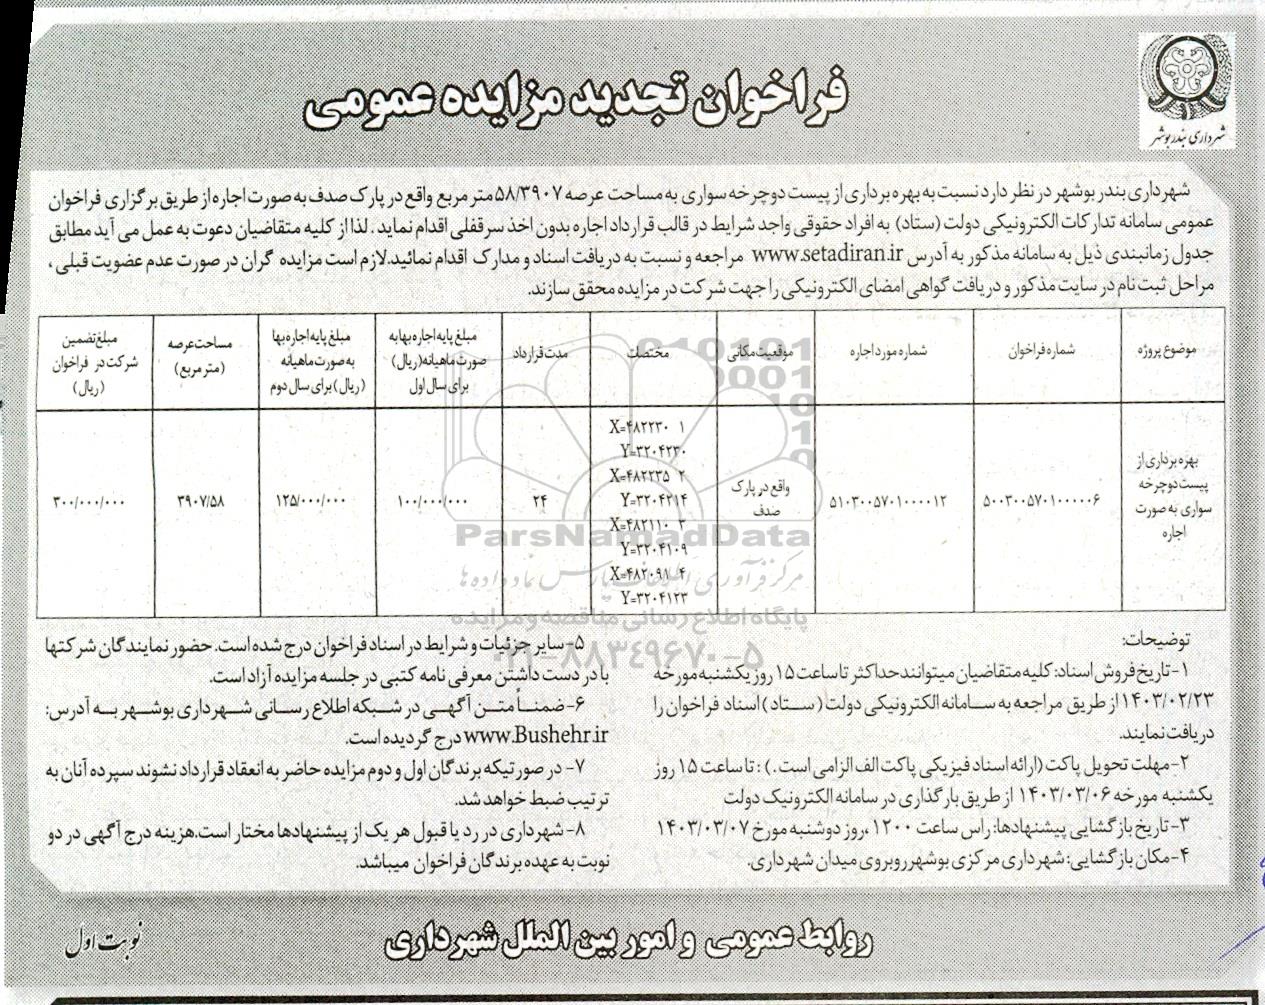 شهرداری بندر بوشهر
فراخوان تجدید مزایده عمومی
شهرداری بندر بوشهر در نظر دارد نسبت به بهره برداری از پیست دوچرخه سواری به مساحت عرصه ۵۸/۳۹۰۷ متر مربع واقع در پارک صدف به صورت اجاره از طریق برگزاری فراخوان
عمومی سامانه تدارکات الکترونیکی دولت (ستاد) به افراد حقوقی واجد شرایط در قالب قرارداد اجاره بدون اخذ سرقفلی اقدام نماید. لذا از کلیه متقاضیان دعوت به عمل می آید مطابق
جدول زمانبندی ذیل به سامانه مذکور به آدرس www.setadiran.ir مراجعه و نسبت به دریافت اسناد و مدارک اقدام نمائید.لازم است مزایده گران در صورت عدم عضویت قبلی ،
مراحل ثبت نام در سایت مذکور و دریافت گواهی امضای الکترونیکی را جهت شرکت در مزایده محقق سازند.
موضوع پروژه
شماره فراخوان
شماره مورد اجاره
موقعیت مکانی
مختصات
مدت قرارداد
مبلغ پایه اجاره بها به
صورت ماهیانه (ریال)
برای سال اول
مبلغ پایه اجاره بها
به صورت ماهیانه
(ریال) برای سال دوم
مساحت عرصه
(متر مربع)
مبلغ تضمین
شرکت در فراخوان
(ریال)
بهره برداری از
پیست دوچرخه
سواری به صورت
اجاره
۵۰۰۳۰۰۵۷۰۱۰۰۰۰۰۶
۵۱۰۳۰۰۵۷۰۱۰۰۰۰۱۲
واقع در پارک
صدف
۱ X=۴۸۲۲۳۰
Y=۳۲۰۴۲۳۰
۲ X=۴۸۲۲۳۵
Y=۳۲۰۴۲۱۴
۳ X=۴۸۲۱۱۰
Y=۳۲۰۴۱۰۹
۴ X=۴۸۲۰۹۱
Y=۳۲۰۴۱۲۳
۲۴
۱۰۰/۰۰۰/۰۰۰
۱۲۵/۰۰۰/۰۰۰
۳۹۰۷/۵۸
۳۰۰/۰۰۰/۰۰۰
ParsNamadData
مرکز فرآوری اطلاعات پارس نماد داده ها
پایگاه اطلاع رسانی مناقصه و مزایده
۰۲۱-۸۸۳۴۹۶۷۰-۵
توضیحات:
۱-تاریخ فروش اسناد: کلیه متقاضیان میتوانند حداکثر تا ساعت ۱۵ روز یکشنبه مورخه
۱۴۰۳/۰۲/۲۳ از طریق مراجعه به سامانه الکترونیکی دولت (ستاد) اسناد فراخوان را
دریافت نمایند.
۲-مهلت تحویل پاکت (ارائه اسناد فیزیکی پاکت الف الزامی است.) : تا ساعت ۱۵ روز
یکشنبه مورخه ۱۴۰۳/۰۳/۰۶ از طریق بارگذاری در سامانه الکترونیک دولت
۳-تاریخ بازگشایی پیشنهادها: راس ساعت ۱۲۰۰ ،روز دوشنبه مورخ ۱۴۰۳/۰۳/۰۷
۴-مکان بازگشایی: شهرداری مرکزی بوشهر روبروی میدان شهرداری.
۵-سایر جزئیات و شرایط در اسناد فراخوان درج شده است.حضور نمایندگان شرکتها
با در دست داشتن معرفی نامه کتبی در جلسه مزایده آزاد است.
۶-ضمناً متن آگهی در شبکه اطلاع رسانی شهرداری بوشهر به آدرس:
www.Bushehr.ir درج گردیده است.
۷- در صورتیکه برندگان اول و دوم مزایده حاضر به انعقاد قرارداد نشوند سپرده آنان به
ترتیب ضبط خواهد شد.
۸-شهرداری در رد یا قبول هر یک از پیشنهادها مختار است.هزینه درج آگهی در دو
نوبت به عهده برندگان فراخوان میباشد.
روابط عمومی و امور بین الملل شهرداری
نوبت اول